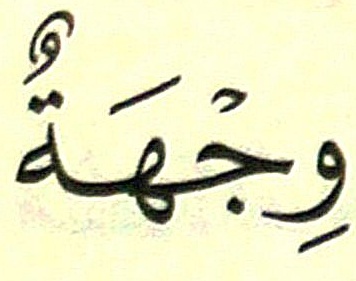 وِجْهَةٌ